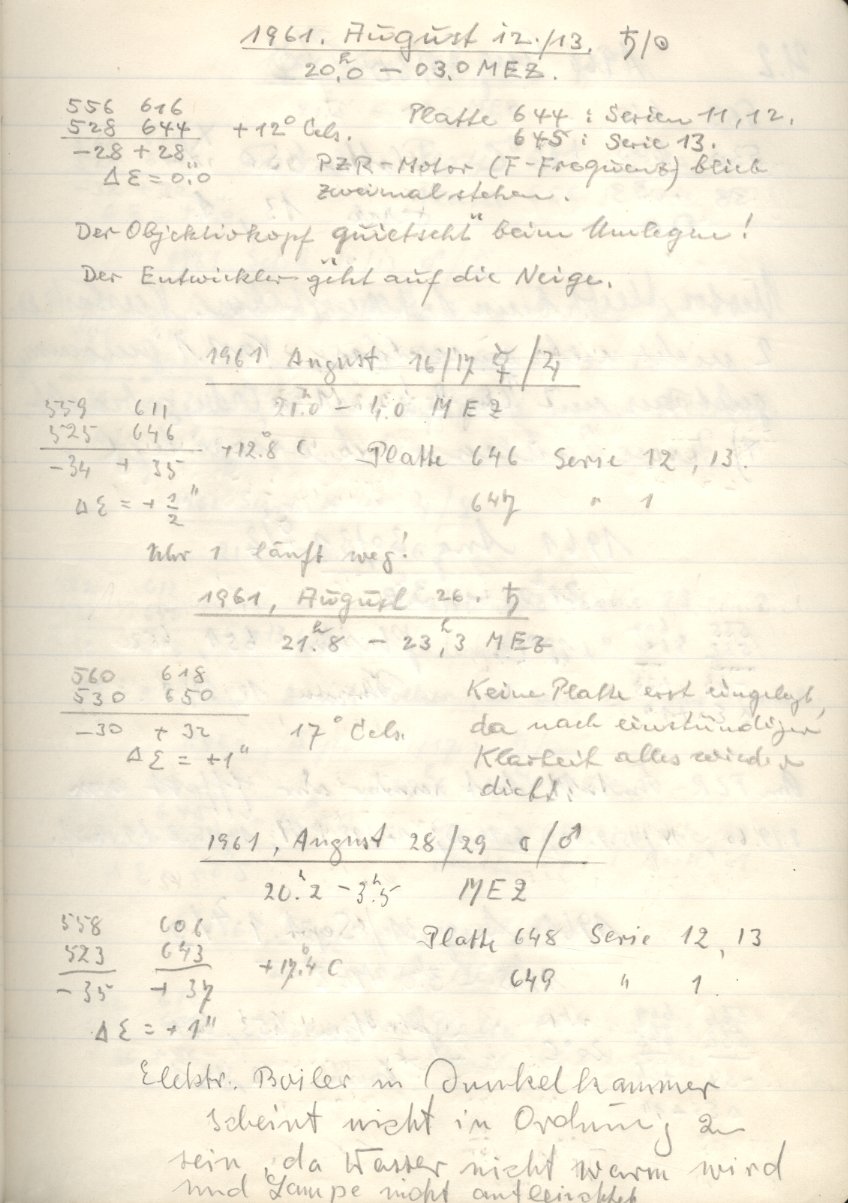 1961. August 12./13. ♄/☉
20ʰ,0 – 03.0 MEZ.
556 616
528 644 +12° Cels. Platte 644 : Serien 11, 12.
-28 +28 645 : Serie 13.
Δε = 0",0 PZR-Motor (F-Frequenz) blieb
zweimal stehen.
Der Objektivkopf "quietscht" beim Umlegen!
Der Entwickler "geht auf die Neige.
1961 August 16/17 ☿/♃
21ʰ.0 – 4ʰ.0 MEZ
559 611
525 646 +12°.8 C Platte 646 Serie 12, 13.
-34 + 35
Δε = + 1/2" 647 " 1
Uhr 1 läuft weg!
1961, August 26. ♄
21ʰ.8 – 23ʰ,3 MEZ
560 618
530 650 Keine Platte erst eingelegt,
-30 + 32 17° Cels. da nach einstündiger
Δε = +1" Klarheit alles wieder
dicht.
1961, August 28/29 ☾/♂
20ʰ.2 – 3ʰ.5 MEZ
558 606
523 643 +17°.4 C Platte 648 Serie 12, 13
-35 + 37 649 " 1.
Δε = +1"
Elektr. Boiler in Dunkelkammer
scheint nicht in Ordnung zu
sein, da Wasser nicht warm wird
und Lampe nicht aufleuchtet